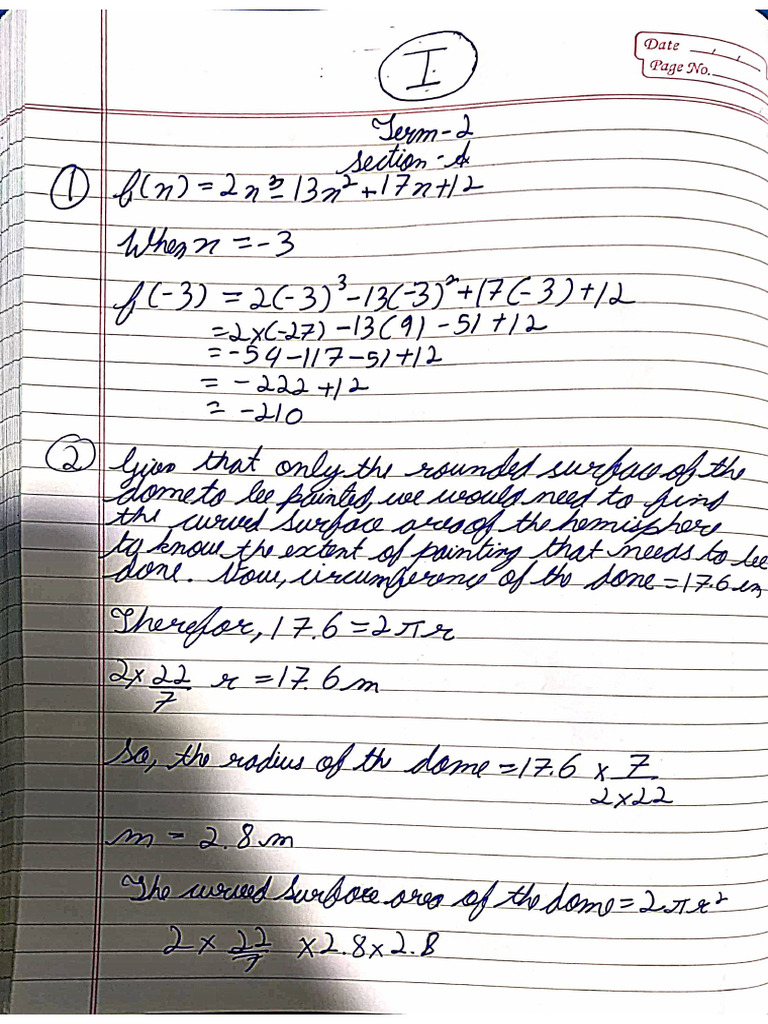 I
Date
Page No.
Term-2
Section-A
① f(n) = 2n³-13n²+17n+12
When n = -3
f(-3) = 2(-3)³-13(-3)²+17(-3)+12
=2×(-27) -13(9) -51 +12
= -54-117-51+12
= -222 +12
= -210
② Given that only the rounded surface of the
dome to be painted, we would need to find
the curved surface area of the hemisphere
to know the extent of painting that needs to be
done. Now, circumference of the dome = 17.6 m
Therefor, 17.6 = 2πr
2×22/7 r = 17.6m
So, the radius of th dome = 17.6 × 7/2×22
m = 2.8m
The curved surface area of the dome = 2πr²
2 × 22/7 ×2.8×2.8